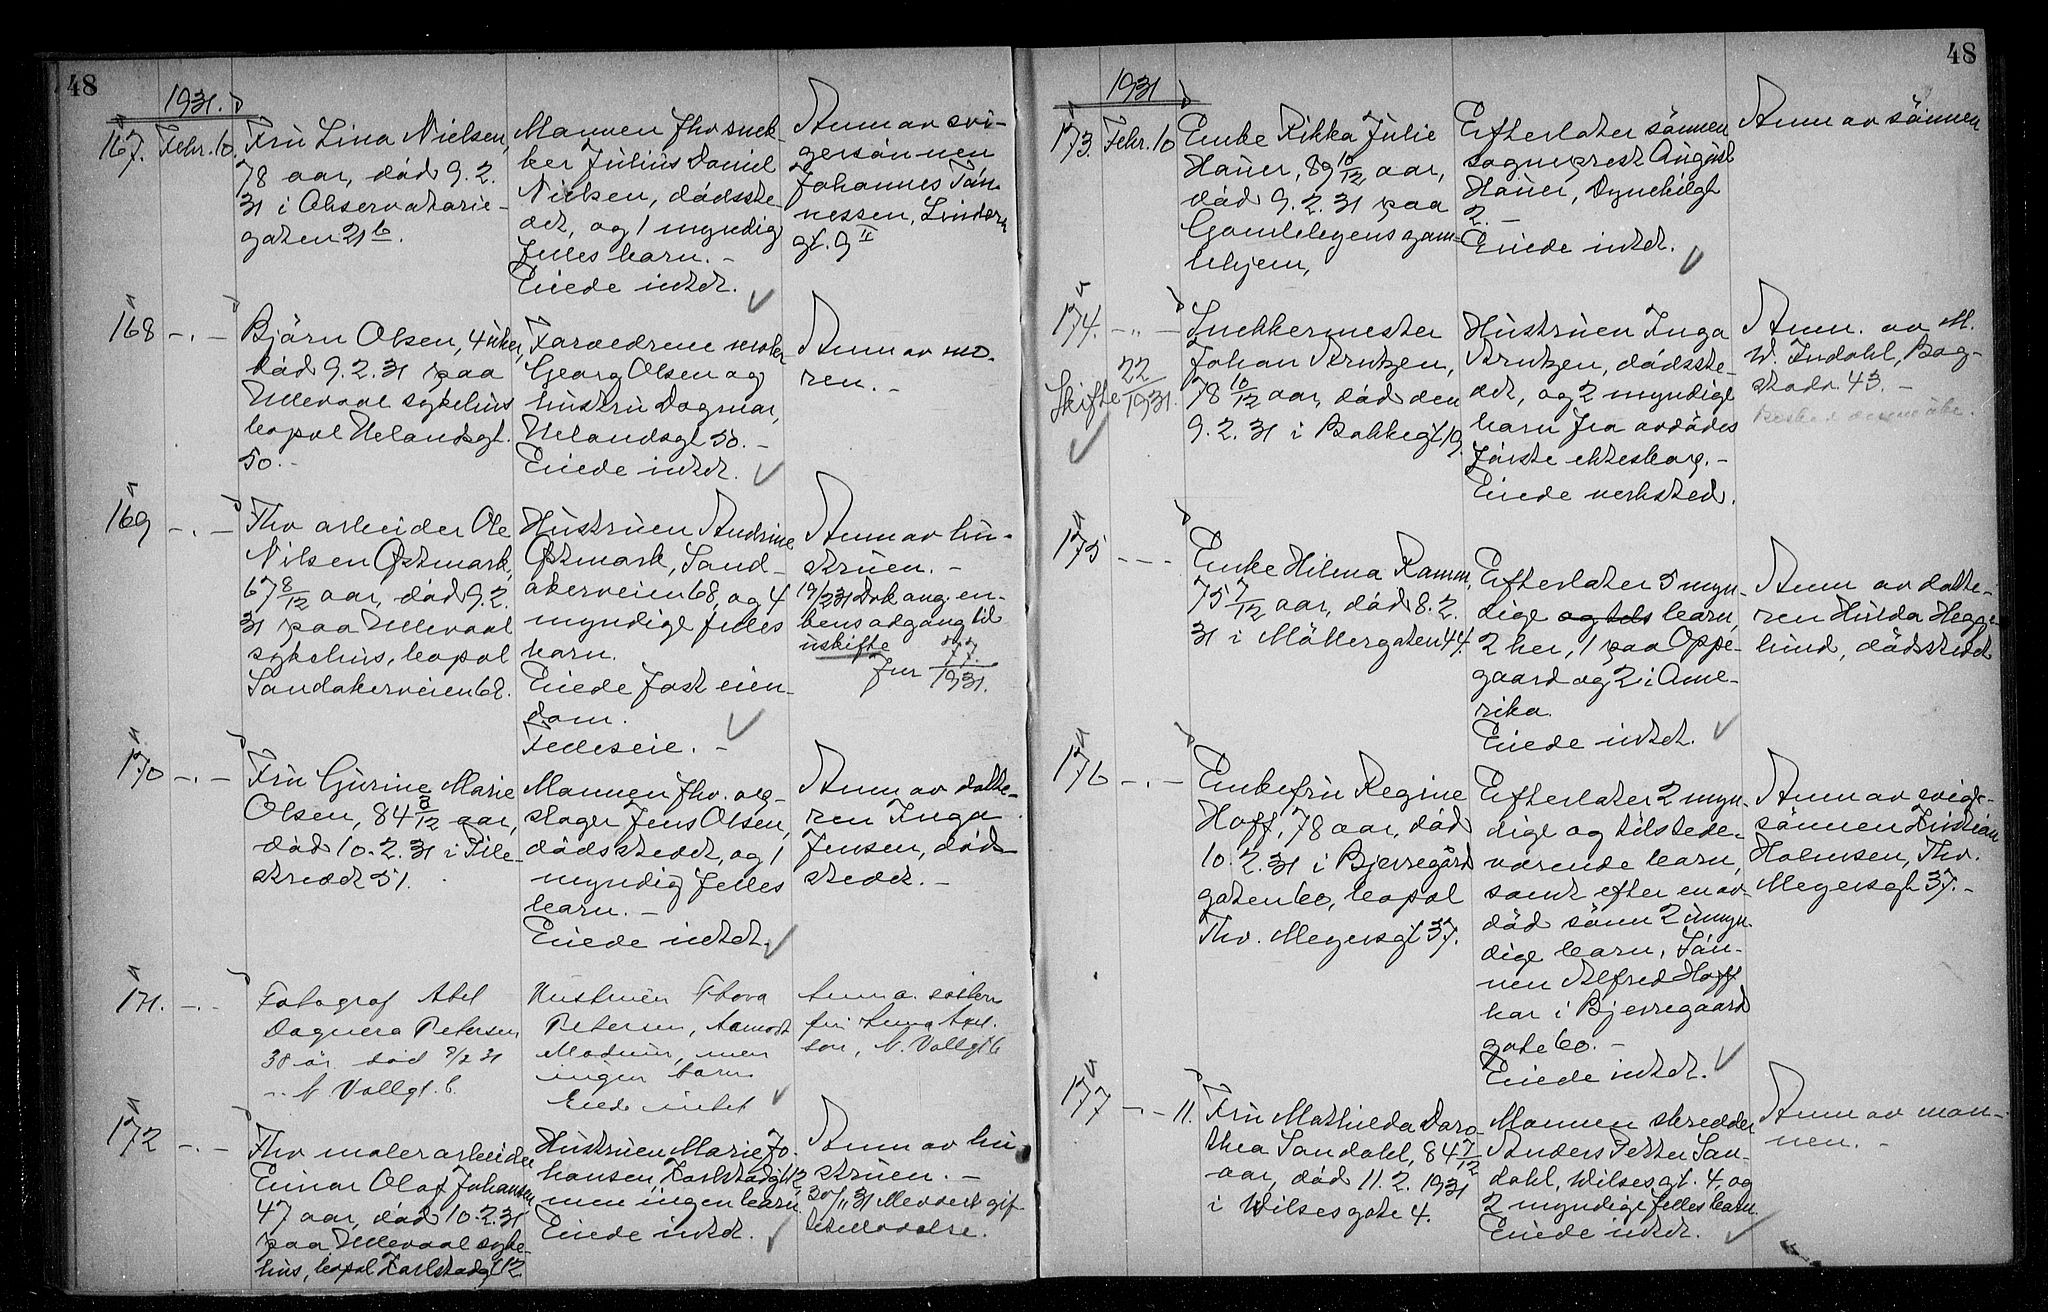 48
1931.
167. Febr. 10. Fru Lina Nielsen,
78 aar, död 9.2.
31 i Observatorie-
gaten 21 b.
Mannen fhv snek-
ker Julius Daniel
Nielsen, dödsste-
det, og 1 myndig
felles barn. -
Eiede intet.
Anm av svi-
gersönnen
Johannes Tön-
nessen,
gt. 9 II
168 - . - Björn Olsen, 4 uker,
död 9.2.31 paa
Ullevaal sykehus
bopæl Uelandsgt.
50. -
Forældrene
Georg Olsen og
hustru Dagmar,
Uelandsgt 50. -
Eiede intet.
Anm av mo-
ren. -
169 - . - Fhv arbeider Ole
Nilsen Østmark,
67 8/12 aar, död 9.2.
31 paa Ullevaal
sykehus, bopæl
Sandakerveien 68.
Hustruen Andrine
Østmark, Sand-
akerveien 68, og 4
myndige felles
barn.
Eiede fast eien-
dom.
Felleseie. -
Anm av hu-
struen. -
19/2 31 Dok ang. en-
kens adgang til
uskifte
Jnr 1931.
170 - . - Fru Gurine Marie
Olsen, 84 8/12 aar,
död 10.2.31 i Pile-
stredet 51.
Mannen fhv. sei-
Jens Olsen,
dödsstedet, og 1
myndig felles
barn. -
Eiede intet.
Anm av datte-
ren Inga
Jensen, död-
stedet. -
171. - . - Fotograf Abel
Daguera Petersen,
38 år död 9/2 31
- . N. Vollgt. 6.
Hustruen Thova
Petersen, Aamodt
Modum, men
ingen barn.
Eiede intet
Anm a.
fru
son, N. Vollgt 6
172 - . - Fhv malerarbeider
Einar Olaf Johansen
47 aar, död 10.2.31
paa Ullevaal syke-
hus, bopæl Karlstadgt 12
Hustruen Marie Jo-
hansen, Karlstadgt 12,
men ingen barn.
Eiede intet.
Anm av hu-
struen. -
30/11 31 Meddelt gif-
tetilladelse.
48
1931
173. Febr. 10 Enke Rikka Julie
Hauer, 89 10/12 aar,
död 9.2.31 paa
Gamlebyens gam-
lehjem,
Efterlater sönnen
sogneprest August
Hauer, Dynekilgt
2. -
Eiede intet.
Anm av sönnen
174. - " - Snekkermester
Johan Arntzen,
78 10/12 aar, död den
9.2.31 i Bakkegt 19.
Skifte 22/1931.
Hustruen Inga
Arntzen, dödsste-
det, og 2 myndige
barn fra avdödes
förste ekteskap. -
Eiede verksted.
Anm. av M.
W. Indahl, Bog-
stadv. 43. -
175 - - - Enke Hilma Ramm,
75 7/12 aar, död 8.2.
31 i Möllergaten 44.
Efterlater 5 myn-
dige og tels barn,
2 her, 1 paa Oppe-
gaard og 2 i Ame-
rika.
Eiede intet.
Anm av datte-
ren Hulda Hegge-
lund, dödsstedet
176 - . - Enkefru Regine
Hoff, 78 aar, död
10.2.31 i Bjerregård
gaten 60, bopæl
Thv. Meyersgt 37.
Efterlater 2 myn-
dige og tilstede-
værende barn,
samt efter en av-
död sönn 2 umyn-
dige barn, Sön-
nen Alfred Hoff
bor i Bjerregaard
gate 60. -
Eiede intet.
Anm av sviger-
sönnen Kristian
Holmsen, Thv.
Meyersgt 37. -
177 - . - 11. Fru Mathilda Doro-
thea Sandahl, 84 7/12
aar, död 11.2.1931
i Wilsesgate 4.
Mannen skredder
Anders Petter San-
dahl, Wilsesgt. 4, og
2 myndige felles barn.
Eiede intet.
Anm av man-
nen. -